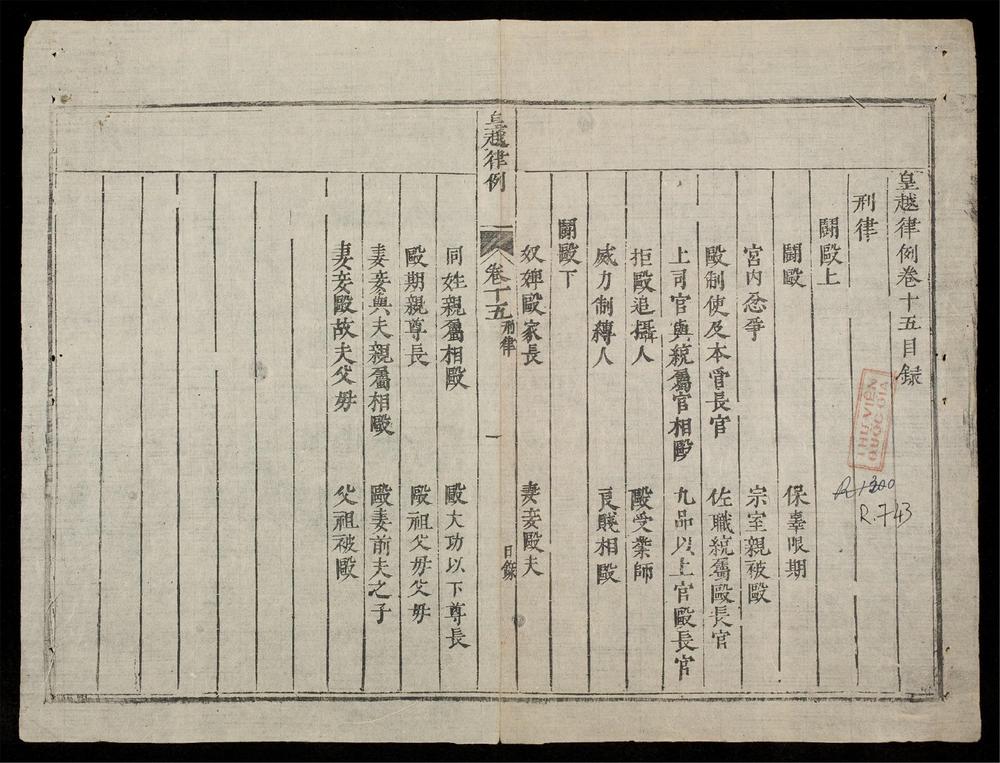 皇越律例卷十五目錄
刑律
鬬毆上
鬬毆 保辜限期
宮內忿爭 宗室親被毆
毆制使及本管長官 佐職統屬毆長官
上司官與統屬官相毆 九品以上官毆長官
拒毆追攝人 毆受業師
威力制縛人 良賤相毆
鬬毆下
奴婢毆家長 妻妾毆夫
皇越律例 卷十五 刑律 一 目錄
同姓親屬相毆 毆大功以下尊長
毆期親尊長 毆祖父母父母
妻妾與夫親屬相毆 毆妻前夫之子
妻妾毆故夫父母 父祖被毆
THƯ VIỆN
QUỐC GIA
R.743